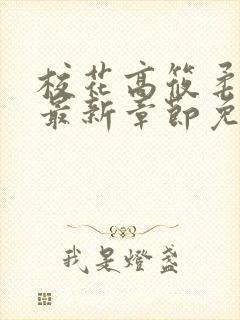 校花高筱柔
最新章节免
我是燈盏